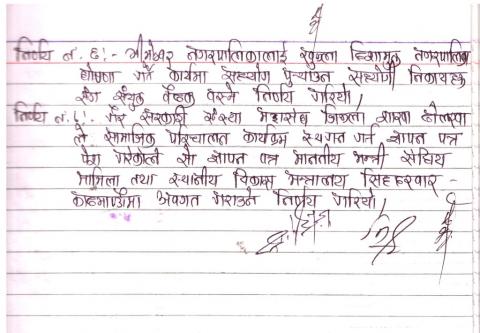 निर्णय नं. ६:- भीमेश्वर नगरपालिकालाई खुल्ला दिशामुक्त नगरपालिका
घोषणा गर्ने कार्यमा सहयोग पुर्‍याउन सहयोगी निकायहरू
संग संयुक्त बैठक बस्ने निर्णय गरियो।
निर्णय नं. ७:- गैर सरकारी संस्था महासंघ जिल्ला शाखा दोलखा
ले सामाजिक परिचालन कार्यक्रम स्थगत गर्न ज्ञापन पत्र
पेश गरेकोले सो ज्ञापन पत्र माननीय मन्त्री संघिय
मामिला तथा स्थानीय विकास मन्त्रालय सिंहदरबार -
काठमाण्डौमा अवगत गराउने निर्णय गरियो।